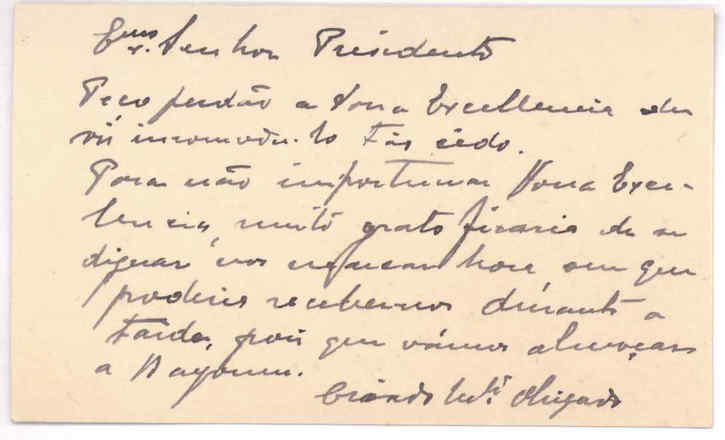 Exmo Sr. Senhor Presidente
Peço perdão a Vossa Excellencia de
vir incomoda-lo tão cêdo.
Para não importunar Vossa Excel-
lencia, muito grato ficaria de se
dignar nos marcar hora em que
poderia receber-nos durante a
tarde, pois que vamos almoçar
a Bayonne.
Criado Mto Obrigado